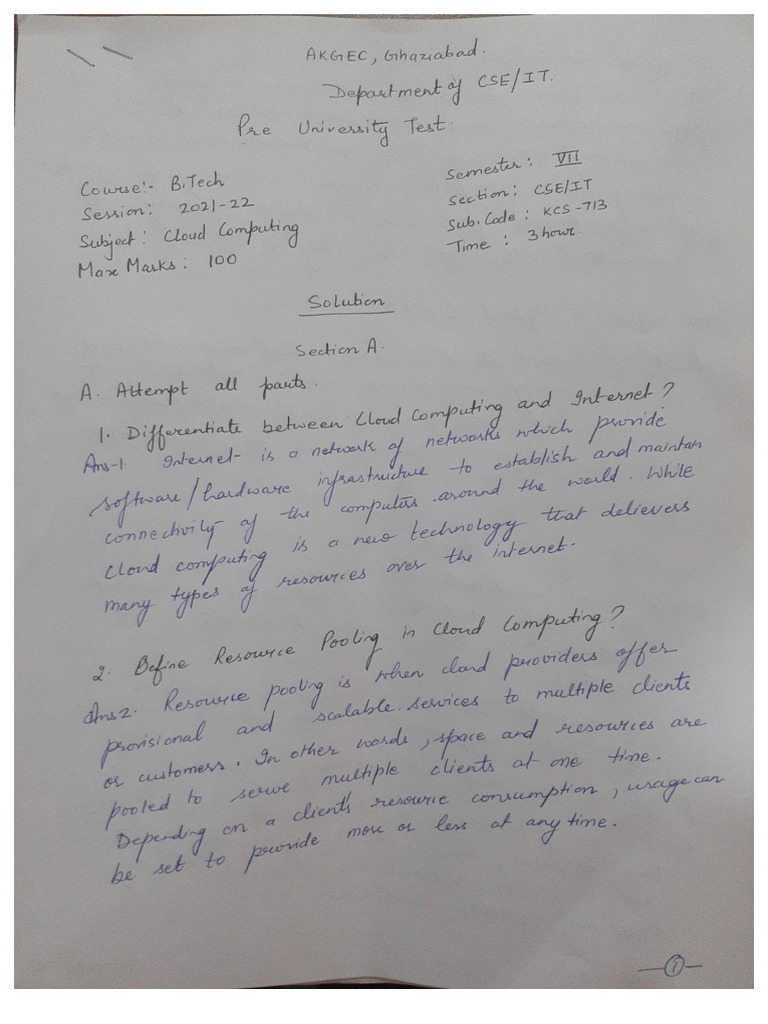 AKGEC, Ghaziabad.
Department of CSE/IT.
Pre University Test.
Course:- B.Tech
Session: 2021-22
Subject: Cloud Computing
Max Marks: 100
Semester: VII
Section: CSE/IT
Sub. Code: KCS-713
Time: 3 hour.
Solution
Section A.
A. Attempt all parts.
1. Differentiate between Cloud Computing and Internet?
Ans-1. Internet is a network of networks which provide
software/hardware infrastructure to establish and maintain
connectivity of the computers around the world. While
Cloud computing is a new technology that delievers
many types of resources over the internet.
2. Define Resource Pooling in Cloud Computing?
Ans2. Resource pooling is when cloud providers offer
provisional and scalable services to multiple clients
or customers. In other words, space and resources are
pooled to serve multiple clients at one time.
Depending on a client's resource consumption, usage can
be set to provide more or less at any time.
1